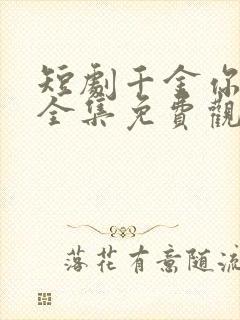 短劇千金你
全集免費觀
落花有意随流